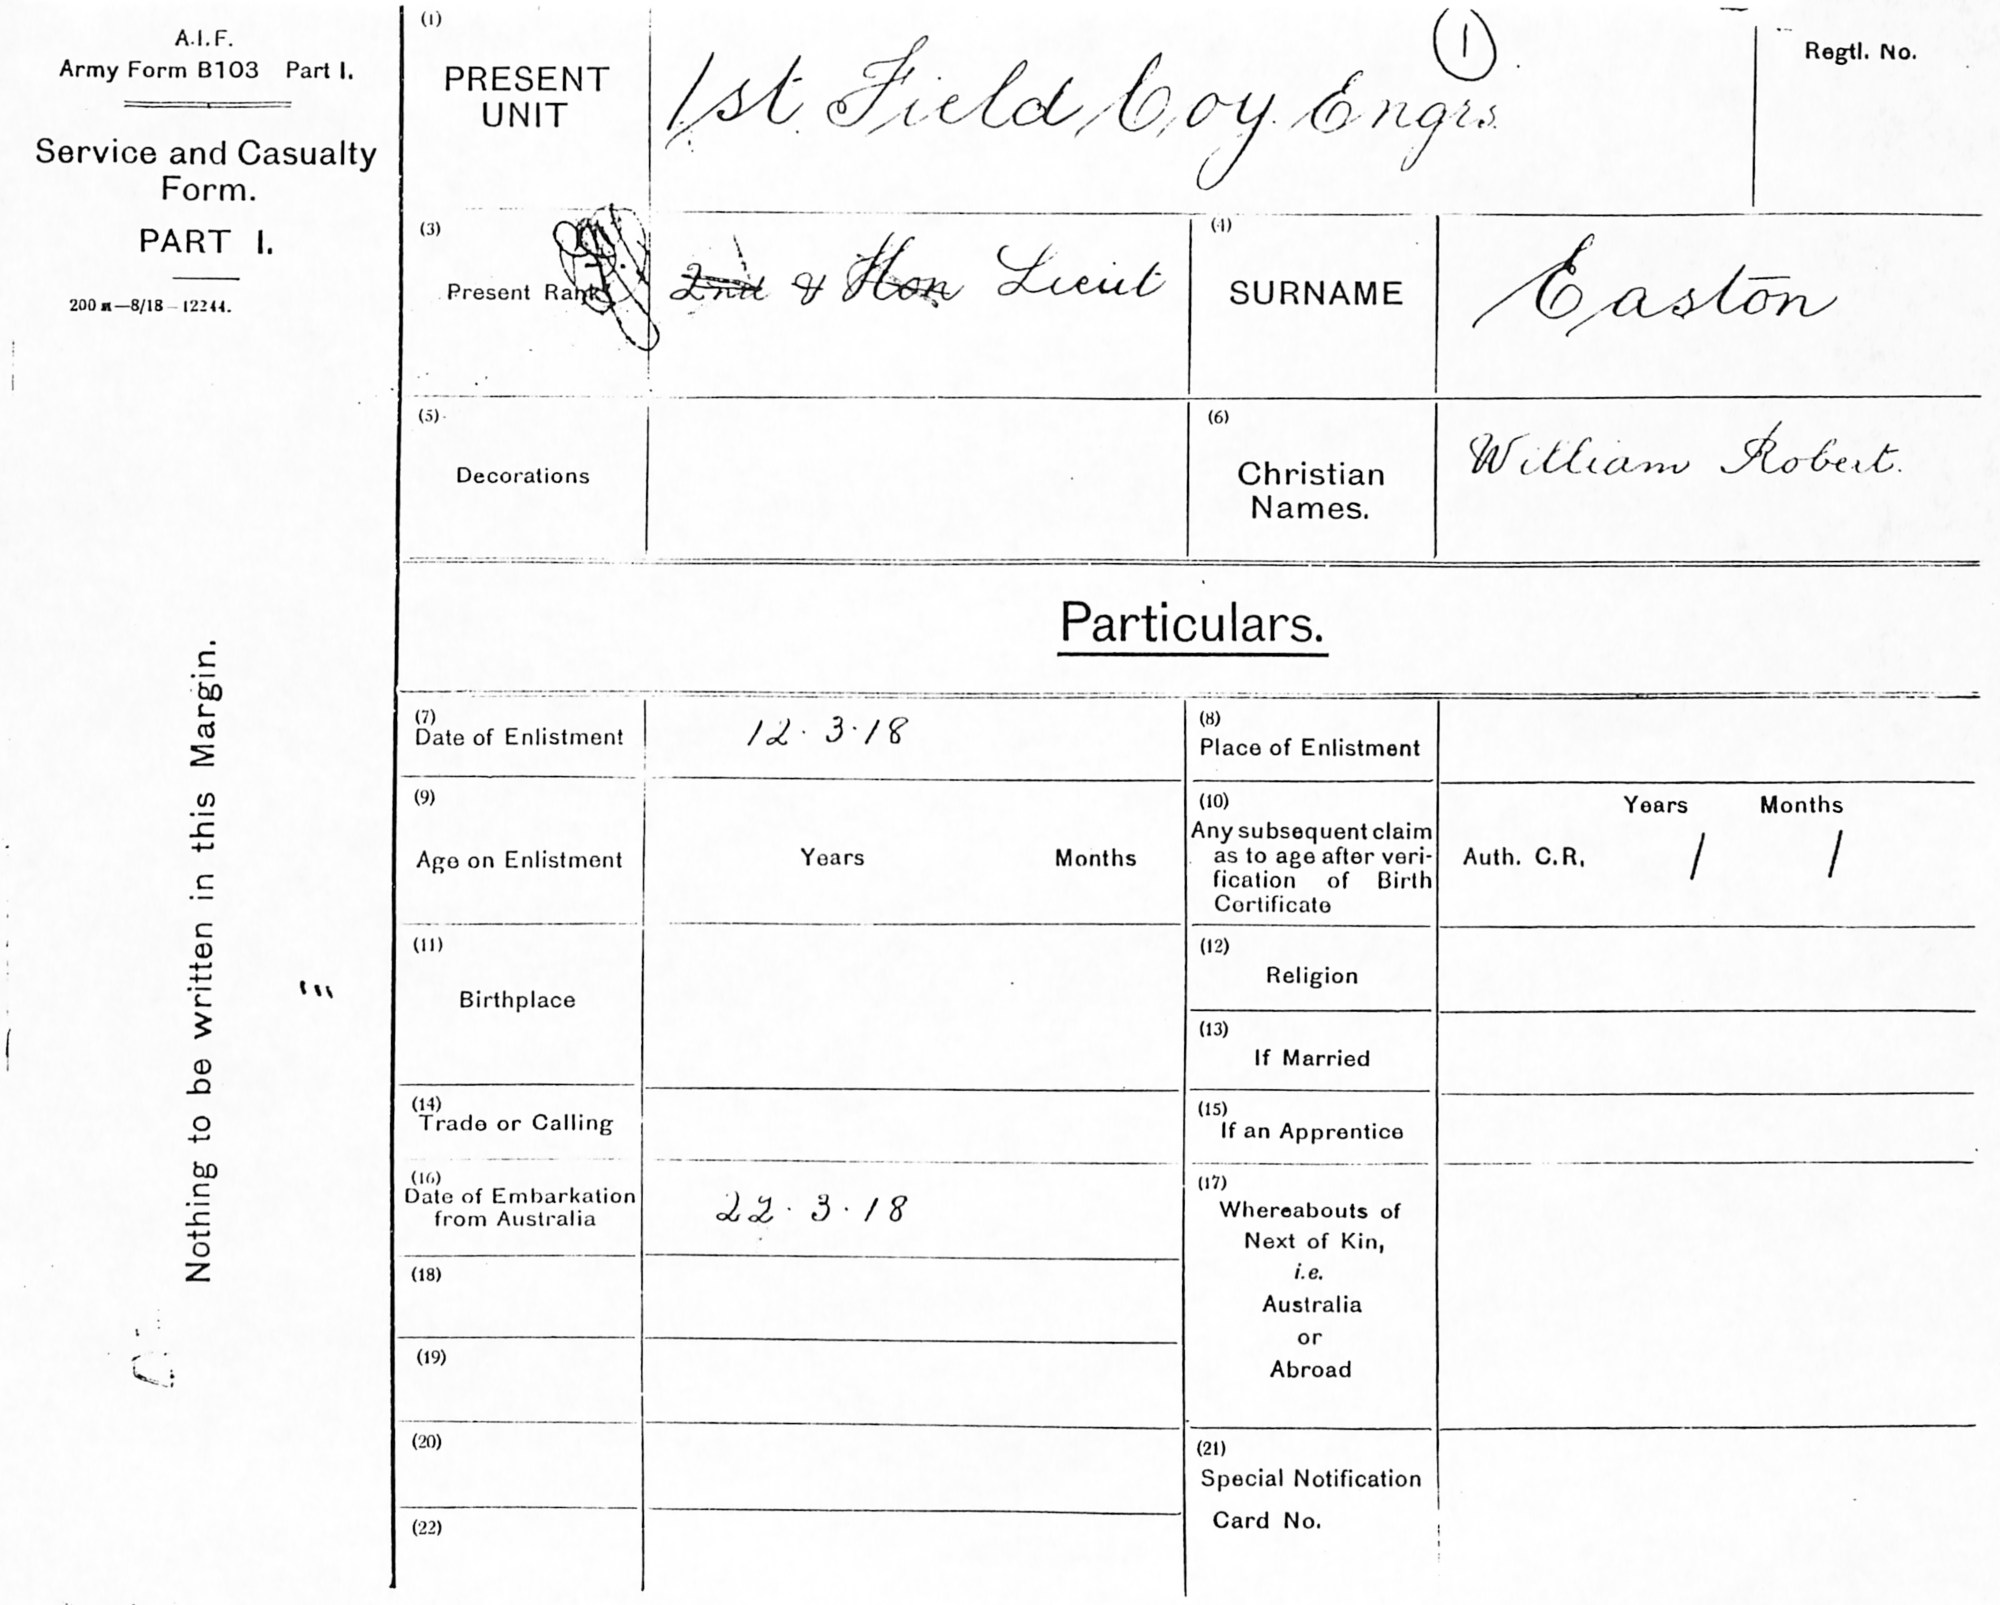 A.I.F.
Army Form B103 Part I.
Service and Casualty
Form.
PART I.
200 M—8/18—12244.
Nothing to be written in this Margin.
(1)
PRESENT
UNIT
1st Field Coy. Engrs.
1
Regtl. No.
(3)
Present Rank
2nd & Hon Lieut
(4)
SURNAME
Easton
(5)
Decorations
(6)
Christian
Names.
William Robert.
Particulars.
(7)
Date of Enlistment
12.3.18
(8)
Place of Enlistment
(9)
Age on Enlistment
Years Months
(10)
Any subsequent claim
as to age after veri-
fication of Birth
Certificate
Years Months
Auth. C.R. / /
(11)
Birthplace
(12)
Religion
(13)
If Married
(14)
Trade or Calling
(15)
If an Apprentice
(16)
Date of Embarkation
from Australia
22.3.18
(17)
Whereabouts of
Next of Kin,
i.e.
Australia
or
Abroad
(18)
(19)
(20)
(21)
Special Notification
Card No.
(22)